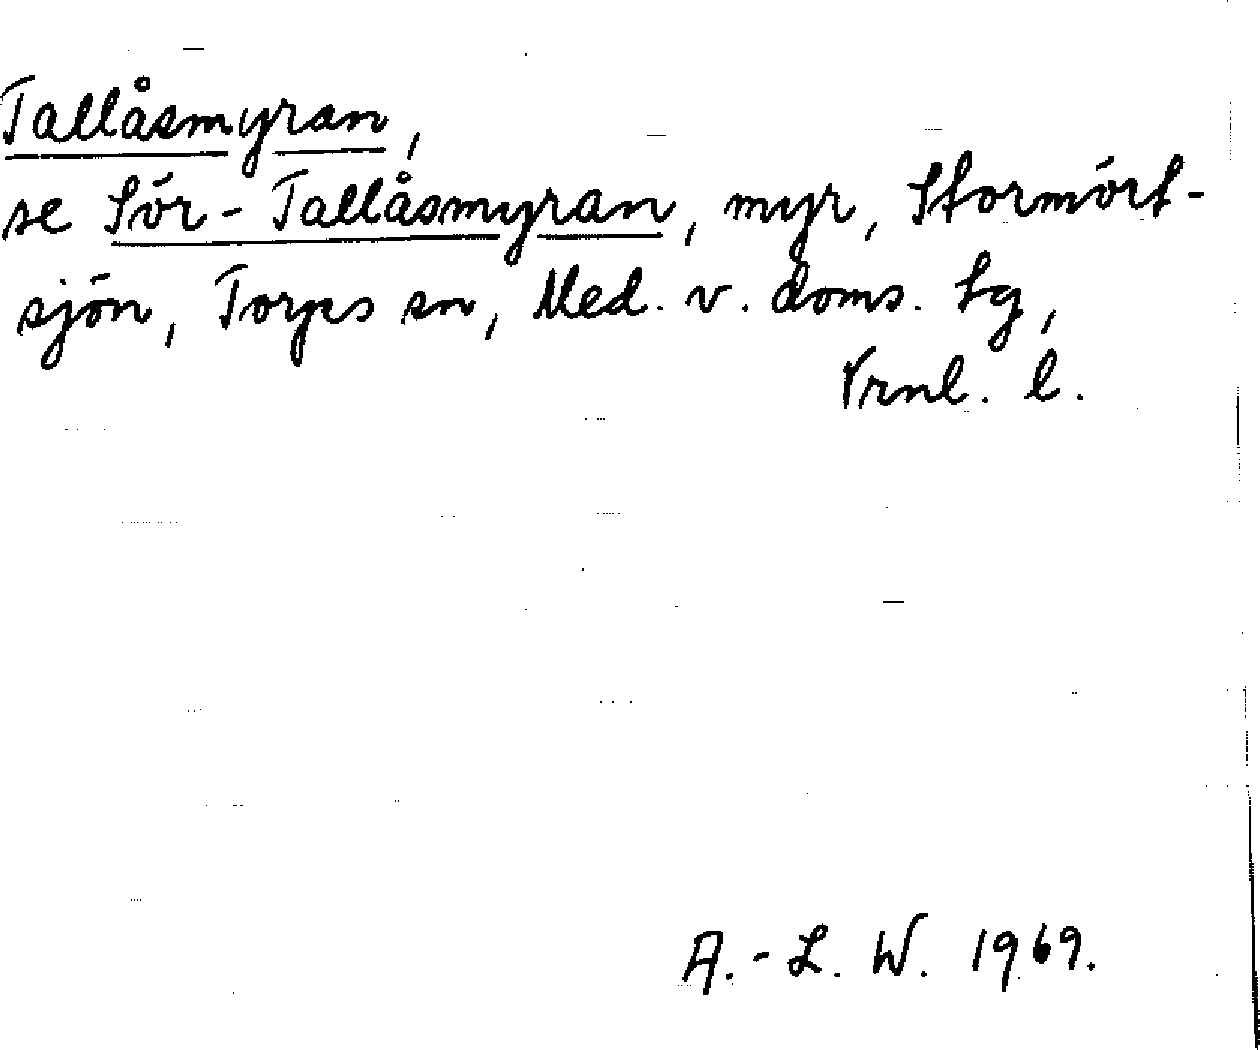 Tallåsmyran,
se Sör-Tallåsmyran, myr, Stormört-
sjön, Torps sn, Med. v. doms. sg,
Vrnl. l.
A.-L. W. 1969.